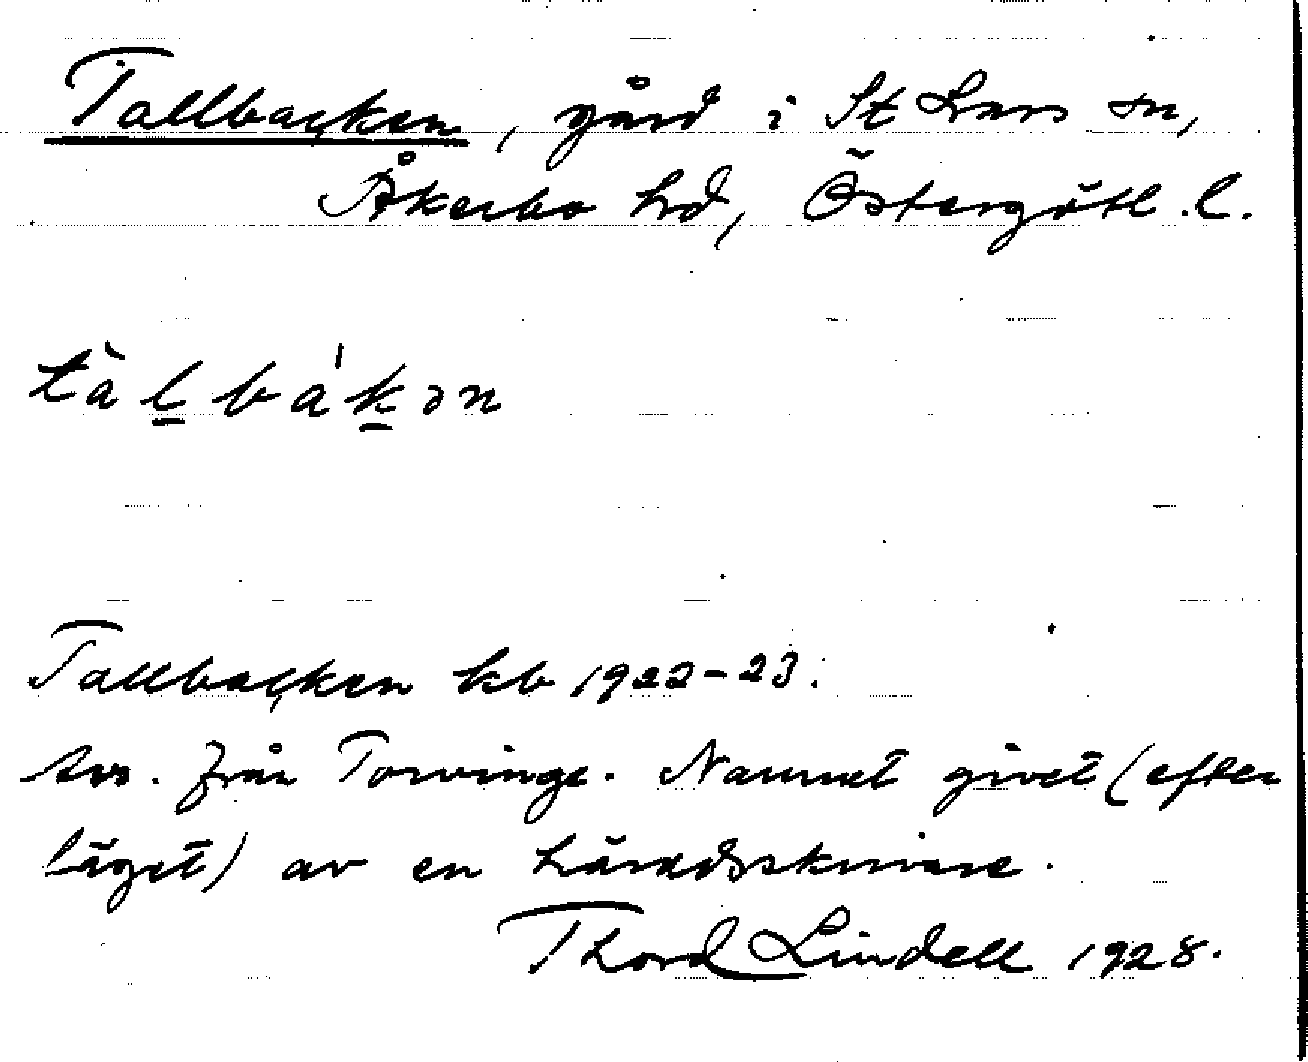 Tallbacken, gård i St Lars sn,
Åkerbo hd, Östergötl. l.
tàl̲bák̲ən
Tallbacken kb 1922-23.
Avs. från Torvinge. Namnet givet (efter
läget) av en häradsskrivare.
Thord Lindell 1928.